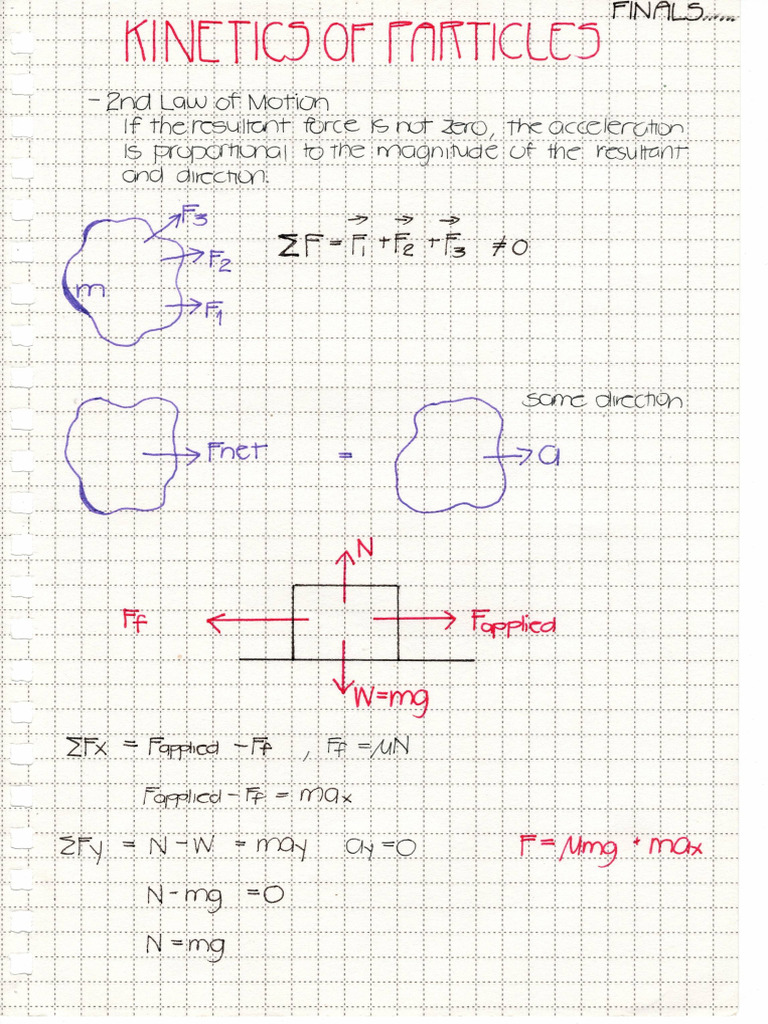 FINALS......
KINETICS OF PARTICLES
- 2nd Law of Motion
If the resultant force is not zero, the acceleration
is proportional to the magnitude of the resultant
and direction.
F3
F2
F1
m
ΣF = F1 + F2 + F3 ≠ 0
same direction
Fnet = a
N
Ff
Fapplied
W=mg
ΣFx = Fapplied - Ff , Ff = μN
Fapplied - Ff = max
ΣFy = N - W = may ay = 0
F = μmg + max
N - mg = 0
N = mg